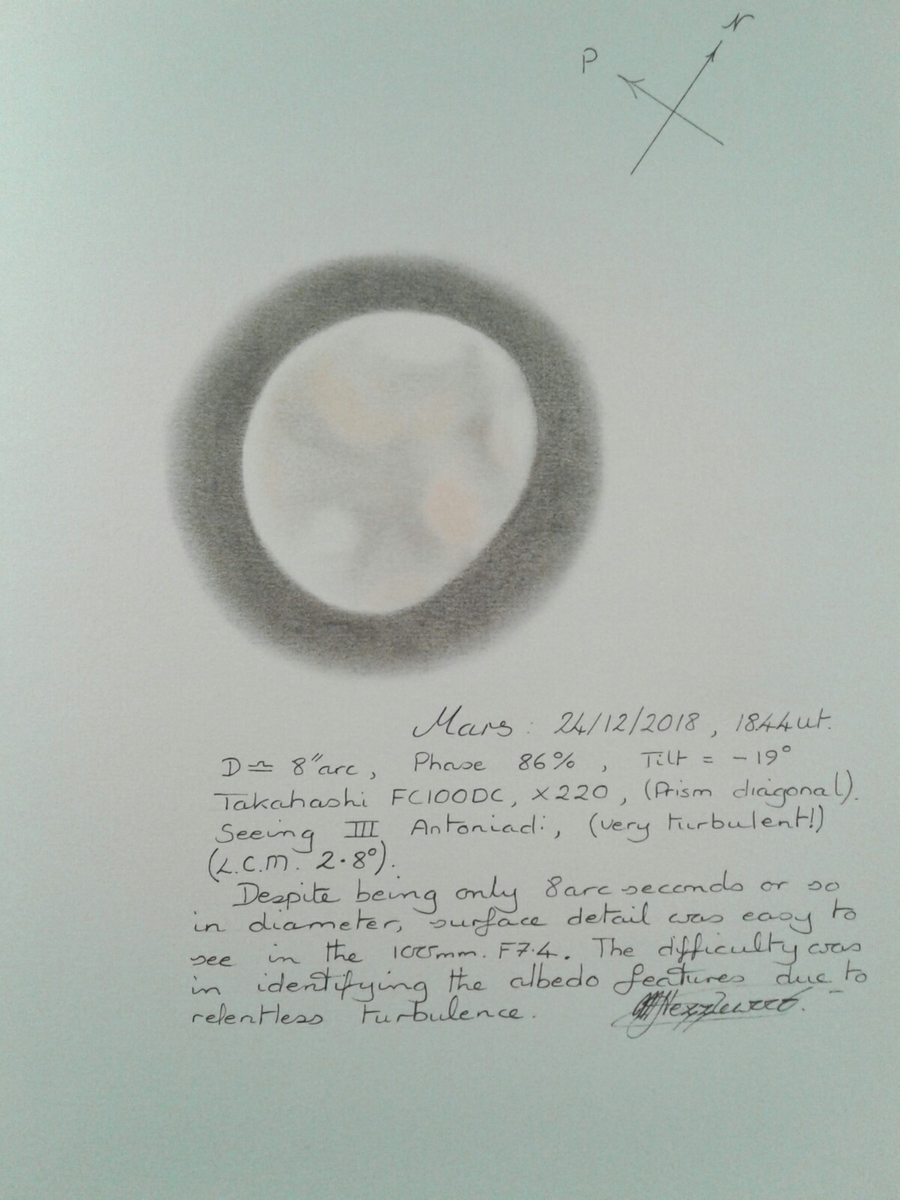 N
P
Mars: 24/12/2018, 1844ut.
D≏ 8"arc, Phase 86%, Tilt = -19°
Takahashi FC100DC, x220, (Prism diagonal).
Seeing III Antoniadi, (very turbulent!)
(L.C.M. 2.8°).
Despite being only 8arc seconds or so
in diameter, surface detail was easy to
see in the 100mm. F7.4. The difficulty was
in identifying the albedo features due to
relentless turbulence.